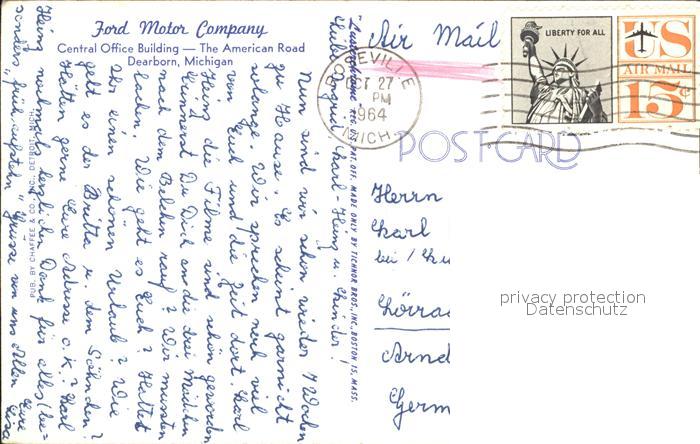 Ford Motor Company
Central Office Building — The American Road
Dearborn, Michigan
Air Mail
LIBERTY FOR ALL
US
AIR MAIL
15¢
ROSEVILLE
OCT 27
PM
1964
MICH.
POST CARD
Herrn
Karl
bei
Lörrac
Germ
privacy protection
Datenschutz
REG. U.S. PAT. OFF. MADE ONLY BY TICHNOR BROS., INC., BOSTON 15, MASS.
Karl-Heinz u. Kinder!
Nun sind wir schon wieder 7 Wochen
zu Hause. Es scheint garnicht
solange. Wir sprechen noch viel
von Euch und die Zeit dort. Karl
Heinz die Filme sind schön geworden
Erinnerst Du Dich an die drei Mädchen
nach dem Belchen rauf? Wir mussten
laden. Wie geht es Euch? Hattet
Ihr einen schönen Urlaub? Wie
geht es der Britta u. dem Söhnchen?
Hätten gerne Eure Adresse o.k.? Karl
Heinz nochmals herzlichen Dank für alles (be-
sonders "früh aufstehn" Grüsse von uns Allen Eure
PUB. BY CHAFFEE & CO., INC., DETROIT, MICH.